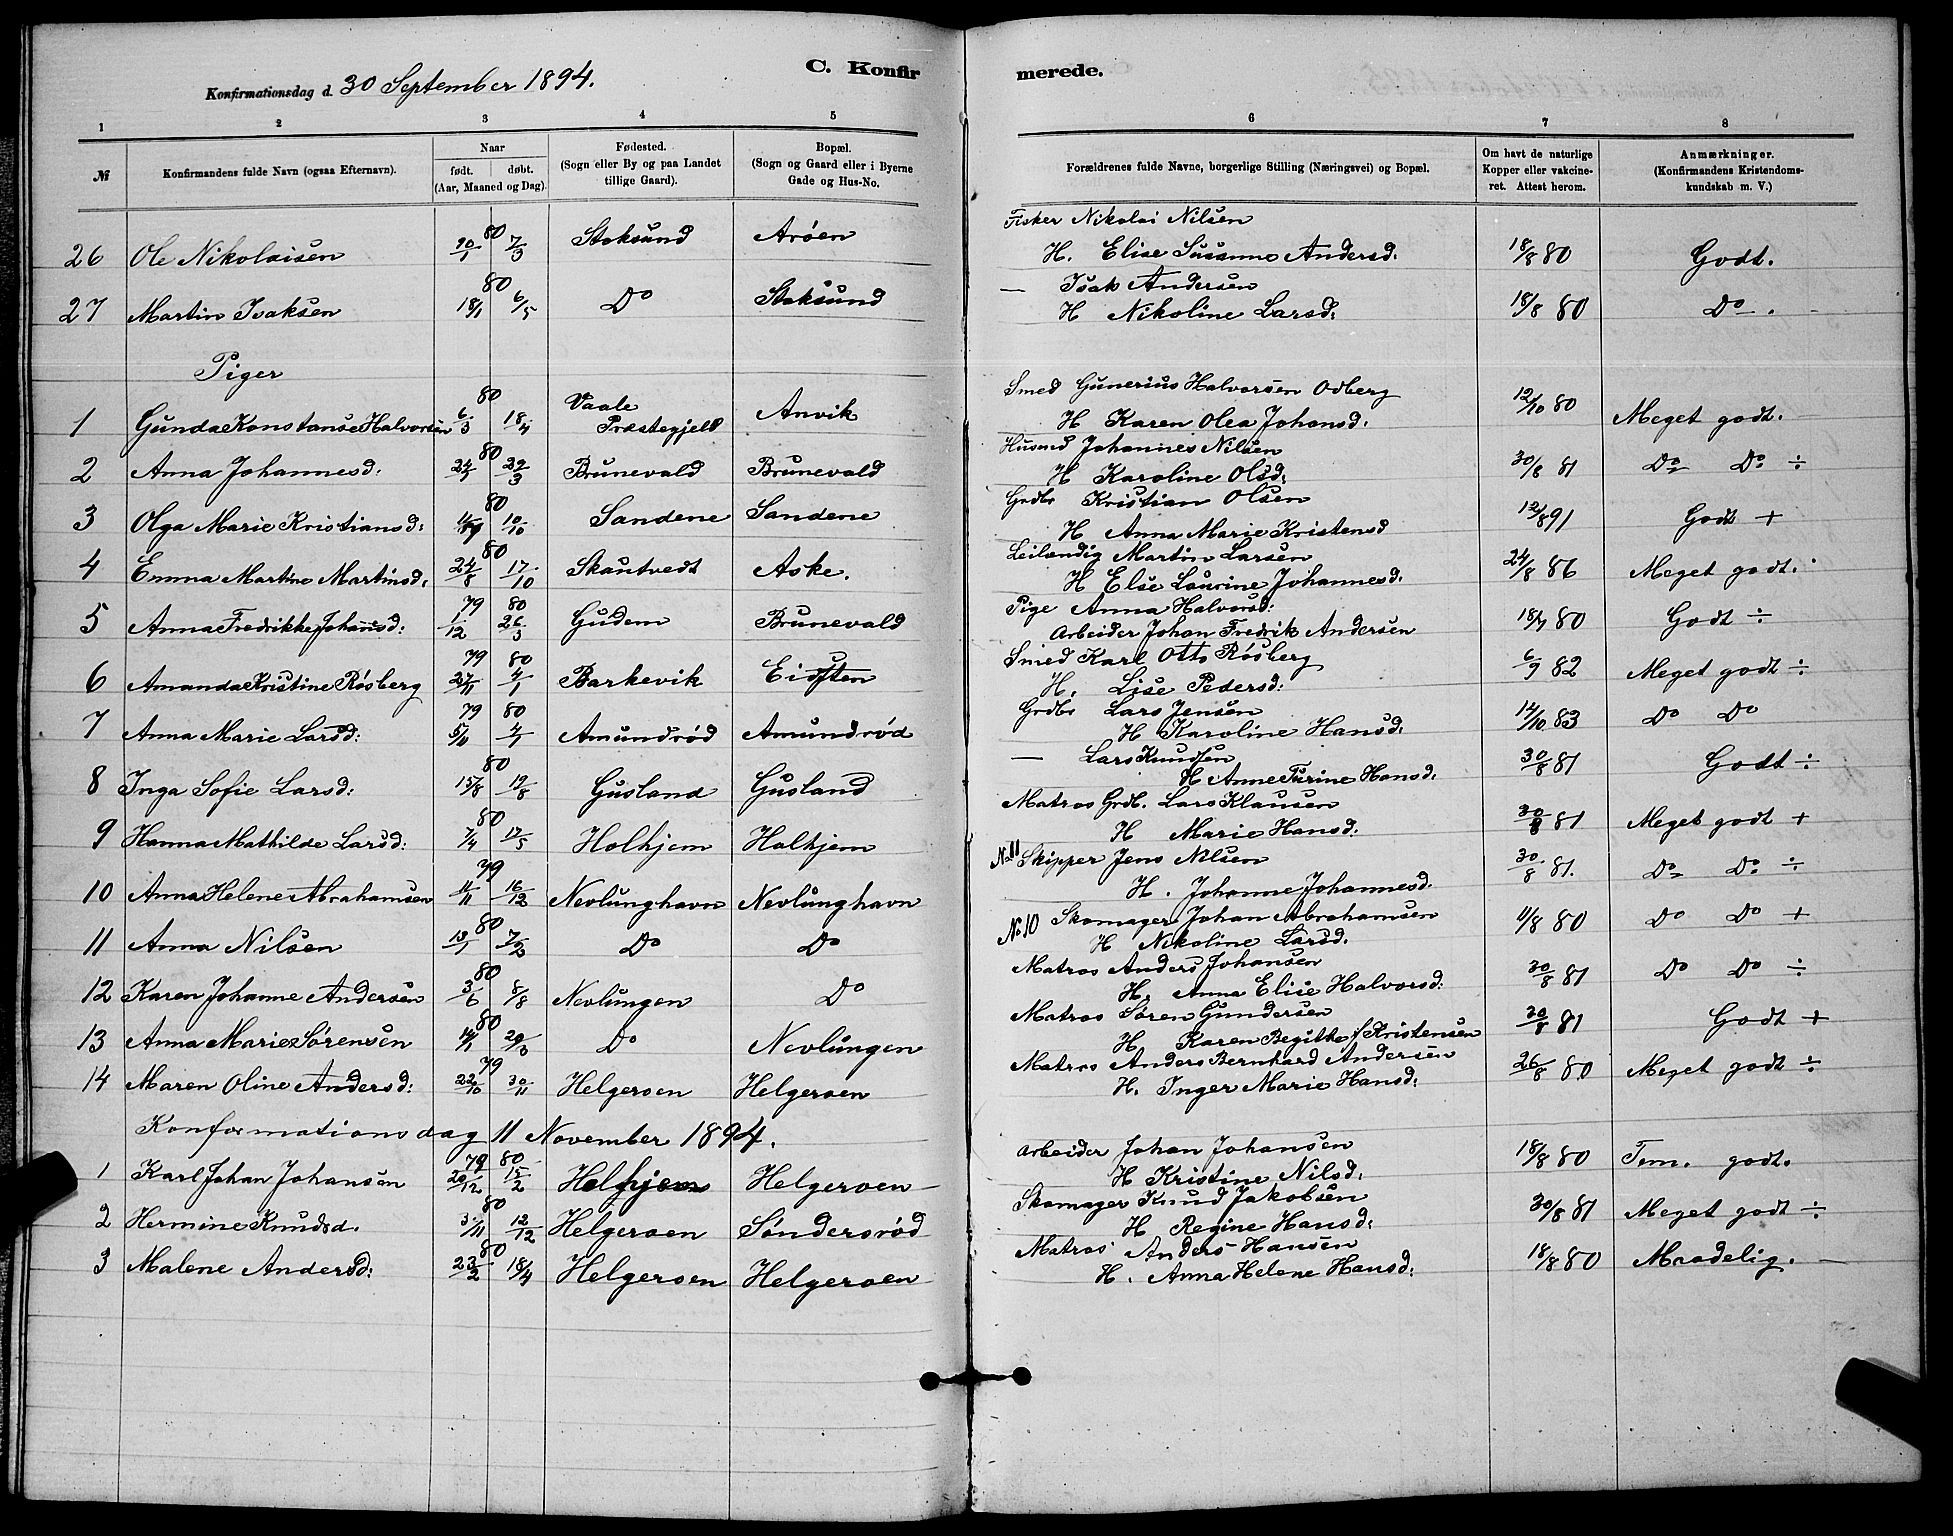 C. Konfirmerede.
Konfirmationsdag d. 30 September 1894.
1 2 3 4 5 6 7 8
№ Konfirmandens fulde Navn (ogsaa Efternavn). Naar født. døbt. (Aar, Maaned og Dag). Fødested. (Sogn eller By og paa Landet tillige Gaard). Bopæl. (Sogn og Gaard eller i Byerne Gade og Hus-No. Forældrenes fulde Navne, borgerlige Stilling (Næringsvei) og Bopæl. Om havt de naturlige Kopper eller vakcineret. Attest herom. Anmærkninger. (Konfirmandens Kristendomskundskab m. V.)
26 Ole Nikolaisen 80 7/3 Stoksund Arøen Fisker Nikolai Nilsen H. Elise Susanne Andersd: 18/8 80 Godt.
27 Martin Isaksen 80 18/1 6/5 Do Stoksund — Isak Andersen H Nikoline Larsd: 18/8 80 Do.
Piger
1 Gunda Konstanse Halvorsen 80 6/3 18/4 Vaale Præstegjeld Anvik Smed Gunerius Halvorsen Odberg H Karen Olea Johansd. 12/10 80 Meget godt.
2 Anna Johannesd: 80 29/3 Brunevald Brunevald Husmd Johannes Nilsen H Karoline Olsd: 30/8 81 Do Do ÷
3 Olga Marie Kristiansd: 80 10/10 Sandene Sandene Grdbr Kristian Olsen H Anna Marie Kristensd 12/8 91 Godt +
4 Emma Martine Martinsd: 80 24/8 17/10 Skautvedt Aske. Leilændig Martin Larsen H Else Laurine Johannesd. 24/8 86 Meget godt.
5 Anna Fredrikke Johansd: 79 1/12 80 26/3 Gudem Brunevald Pige Anna Halvorsd: Arbeider Johan Fredrik Andersen 80 Godt ÷
6 Amanda Kristine Røsberg 79 27/11 80 4/1 Barkevik Eidsten Smed Karl Otto Røsberg H. Lise Pedersd: 6/9 82 Meget godt ÷
7 Anna Marie Larsd: 79 80 4/1 Amundrød Amundrød Grdbr Lars Jensen H Karoline Hansd: 14/10 83 Do Do
8 Inga Sofie Larsd: 80 19/8 Gusland Gusland — Lars Knudsen H Anne Turine Hansd: 30/8 81 Godt ÷
9 Hanna Mathilde Larsd: 80 7/4 17/5 Holhjem Holhjem Matros Grdb. Lars Klausen H Marie Hansd: 30/8 81 Meget godt +
10 Anna Helene Abrahamsen 79 11/11 16/12 Nevlunghavn Nevlunghavn No 11 Skipper Jens Nilsen H. Johanne Johannesd. 30/8 81. Do Do ÷
11 Anna Nilsen 80 13/1 7/2 Do Do No 10 Skomager Johan Abrahamsen H Nikoline Larsd. 11/8 80 Do Do +
12 Karen Johanne Andersen 80 3/6 8/8 Nevlungen Do Matros Anders Johansen H. Anna Elise Halvorsd: 30/8 81 Do Do ÷
13 Anna Marie Sørensen 80 14/1 29/3 Do Nevlungen Matros Søren Gundersen H Karen Begitte f Kristensen 30/8 81 Godt +
14 Maren Oline Andersd: 79 22/10 30/11 Helgeroen Helgeroen Matros Anders Bernhard Andersen H. Inger Marie Hansd: 26/8 80 Meget godt ÷
Konformationsdag 11 November 1894.
1 Karl Johan Johansen 79 20/12 80 15/2 Holhjem Helgeroen Arbeider Johan Johansen H Kristine Nilsd. 18/8 80 Tem. godt.
2 Hermine Knudsd. 80 12/12 Helgeroen Søndersrød Skomager Knud Jakobsen H Regine Hansd: 30/8 81 Meget godt ÷
3 Malene Andersd: 80 23/2 18/4 Helgeroen Helgeroen Matros Anders Hansen H. Anna Helene Hansd: 18/8 80 Maadelig. —